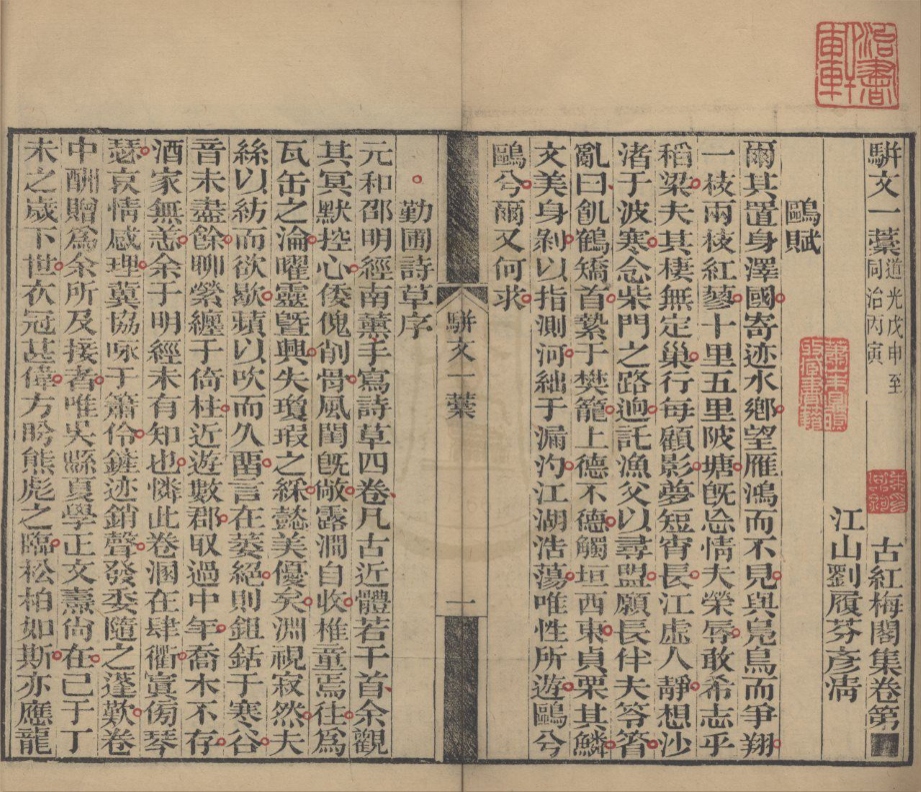 駢文一藁 道光戊申至同治丙寅 古紅梅閣集卷第
江山劉履芬彥淸
鷗賦
爾其置身澤國寄迹水鄉望雁鴻而不見與鳧鳥而爭翔
一枝兩枝紅蓼十里五里陂塘旣忘情夫榮辱敢希志乎
稻粱夫其棲無定巢行每顧影夢短宵長江虛人靜想沙
渚于波寒念柴門之路逈託漁父以尋盟願長伴夫笭箵
亂曰飢鶴矯首縶于樊籠上德不德觸垣西東貞栗其鱗
文美身剝以指測河絀于漏汋江湖浩蕩唯性所遊鷗兮
鷗兮爾又何求
駢文一藁 一
勤圃詩草序
元和邵明經南薰手寫詩草四卷凡古近體若干首余觀
其冥默控心倭傀削骨風閨旣敞露澗自收椎童焉往爲
瓦缶之淪曜靈曁興失瓊瑕之綵懿美優矣淵視寂然夫
絲以紡而欲歇蘋以吹而久畱言在葵絕則鉏銛于寒谷
音未盡餘聊縈纏于倚柱近遊數郡取過中年喬木不存
酒家無恙余于明經未有知也憐此卷溷在肆衢寘傍琴
瑟哀情感理冀協咏于簫伶鏟迹銷聲發委隨之蓬歎卷
中酬贈爲余所及接者唯吳縣夏學正文燾尙在已于丁
未之歲下世衣冠甚偉方盻熊彪之臨松柏如斯亦應龍